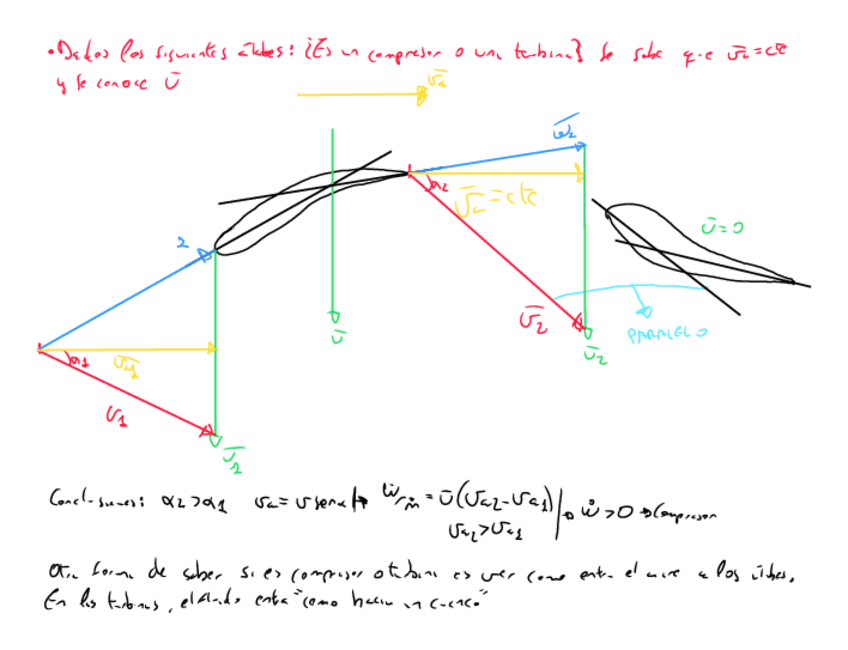 •Dados los siguientes álabes: ¿Es un compresor o una turbina? Se sabe que v̄z=cte
y se conoce Ū
v̄a
w̄2
α2
v̄a=cte
Ū=0
2
Ū
v̄2
PARALELO
Ū2
α1
v̄a1
v1
Ū2
Conclusiones: α2>α1 va=v senα Ẇ/ṁ=Ū(va2-va1) → ẇ>0 → Compresor
va2>va1
Otra forma de saber si es compresor o turbina es ver como entra el aire a los álabes.
En las turbinas, el fluido entra "como hacia un cuenco"